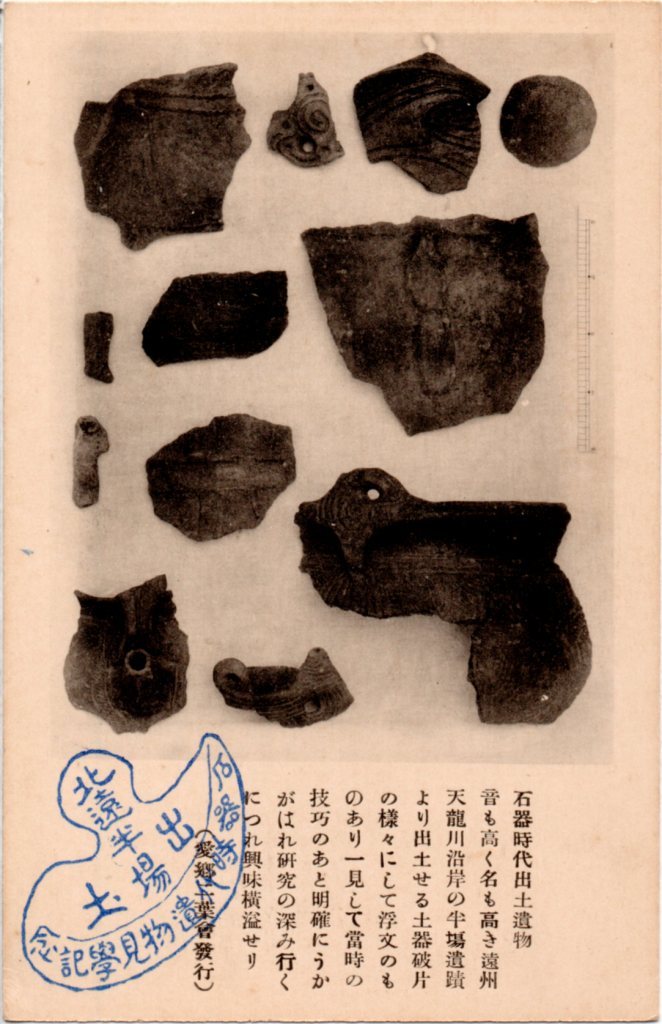 石器時代出土遺物
音も高く名も高き遠州
天龍川沿岸の半塲遺蹟
より出土せる土器破片
の樣々にして浮文のも
のあり一見して當時の
技巧のあと明確にうか
がはれ硏究の深み行く
につれ興味橫溢せり
(愛郷葉會發行)
北遠半場
出土
石器時代遺物見學記念